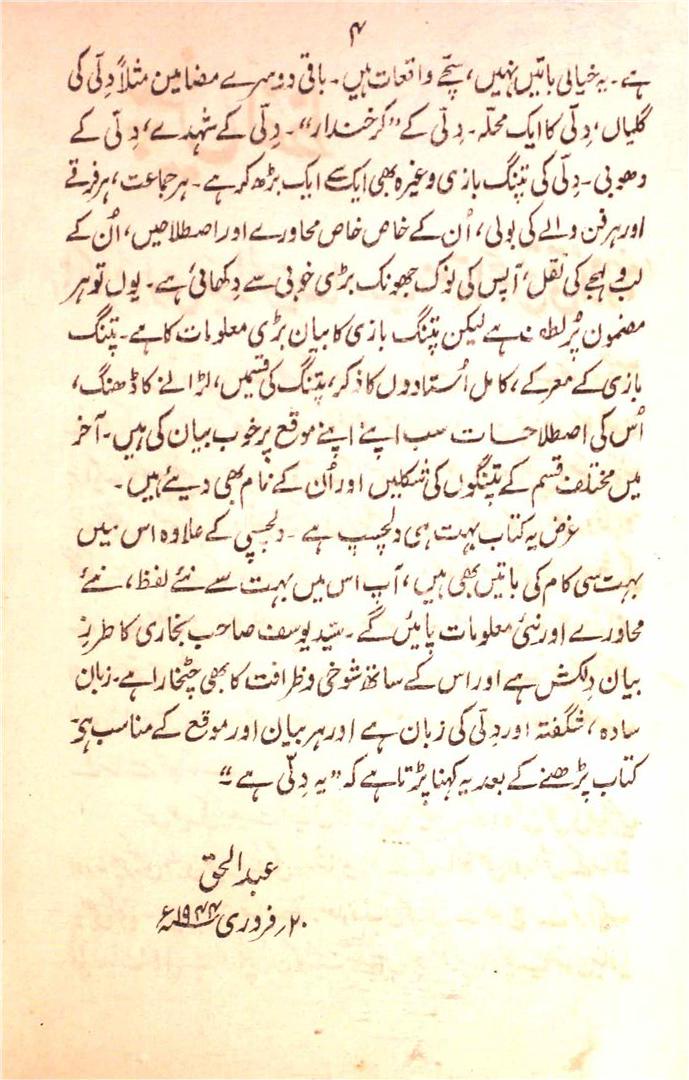 ۴
ہے۔ یہ خیالی باتیں نہیں، سچّے واقعات ہیں۔ باقی دوسرے مضامین مثلاً دِلّی کی
گلیاں، دِلّی کا ایک محلّہ۔ دِلّی کے ”کرخندار“۔ دِلّی کے شُہدے، دِلّی کے
دھوبی۔ دِلّی کی پتنگ بازی وغیرہ بھی ایک سے ایک بڑھ کر ہے۔ ہر جماعت، ہر فرقے
اور ہر فن والے کی بولی، اُن کے خاص خاص محاورے اور اصطلاحیں، اُن کے
لب و لہجے کی نقل، آپس کی نوک جھونک بڑی خوبی سے دِکھائی ہے۔ یوں تو ہر
مضمون پُرلطف ہے لیکن پتنگ بازی کا بیان بڑی معلومات کا ہے۔ پتنگ
بازی کے معرکے، کامل اُستادوں کا ذکر، پتنگ کی قسمیں، لڑانے کا ڈھنگ،
اُس کی اصطلاحات سب اپنے اپنے موقع پر خوب بیان کی ہیں۔ آخر
میں مختلف قسم کے پتنگوں کی شکلیں اور اُن کے نام بھی دیئے ہیں۔
غرض یہ کتاب بہت ہی دلچسپ ہے۔ دلچسپی کے علاوہ اس میں
بہت سی کام کی باتیں بھی ہیں، آپ اس میں بہت سے نئے لفظ، نئے
محاورے اور نئی معلومات پائیں گے۔ سیّد یوسف صاحب بخاری کا طرزِ
بیان دِلکش ہے اور اس کے ساتھ شوخی و ظرافت کا بھی چٹخارا ہے۔ زبان
سادہ، شگفتہ اور دِلّی کی زبان ہے اور ہر بیان اور موقع کے مناسب ہی۔
کتاب پڑھنے کے بعد یہ کہنا پڑتا ہے کہ ”یہ دِلّی ہے“
عبدالحق
۲۰؍ فروری ۱۹۴۴ء